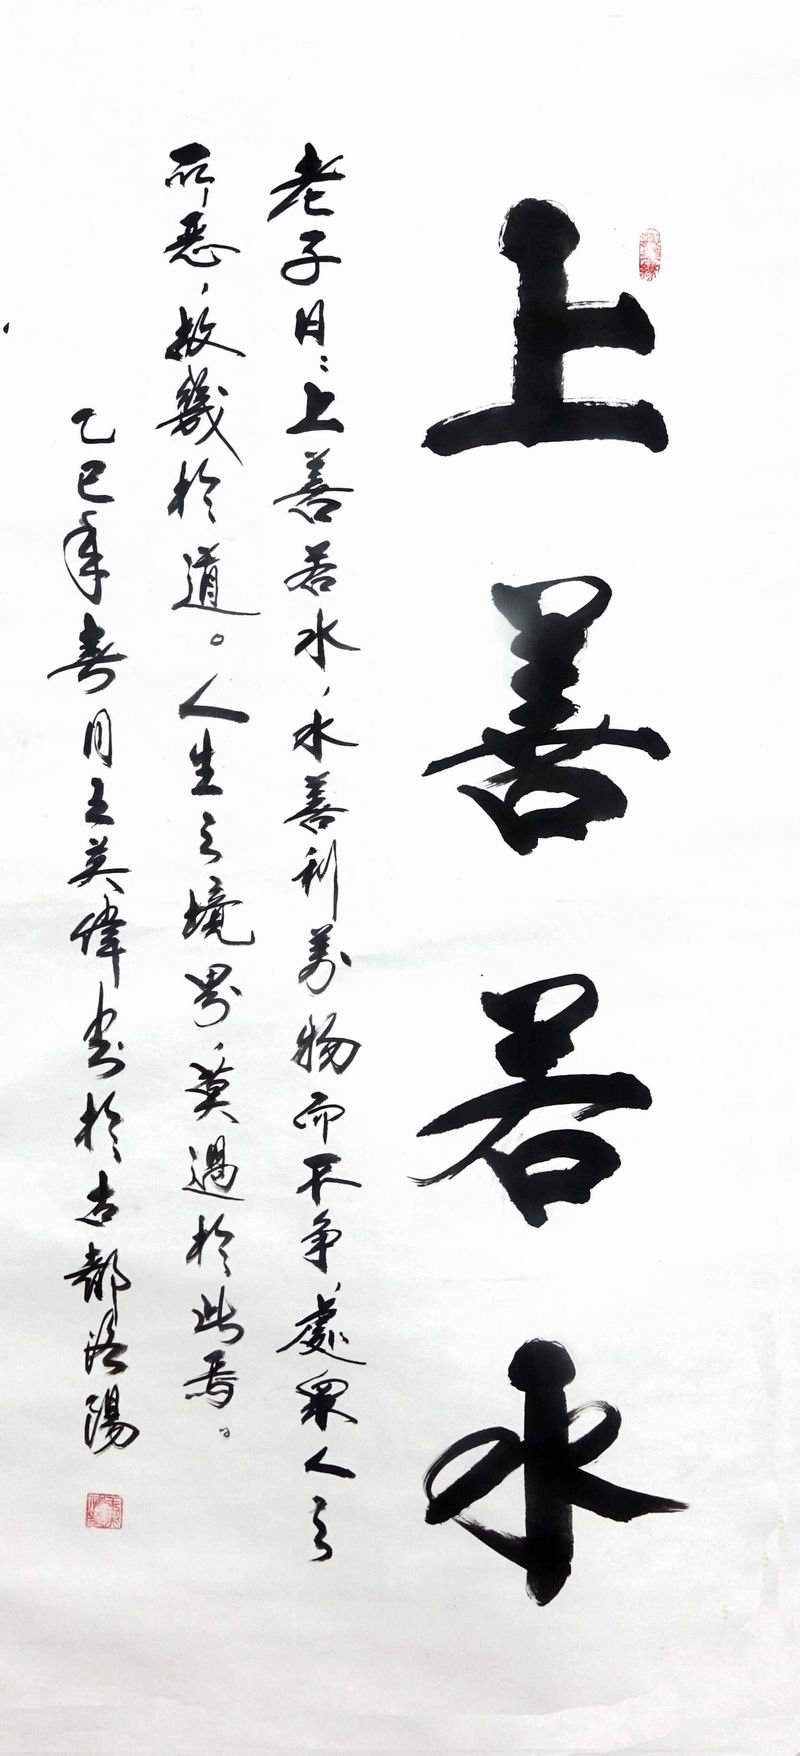 上善若水
老子曰：上善若水，水善利萬物而不争，處眾人之
所恶，故幾於道。人生之境界，莫過於此焉。
乙巳年春月王英偉書於古都洛陽